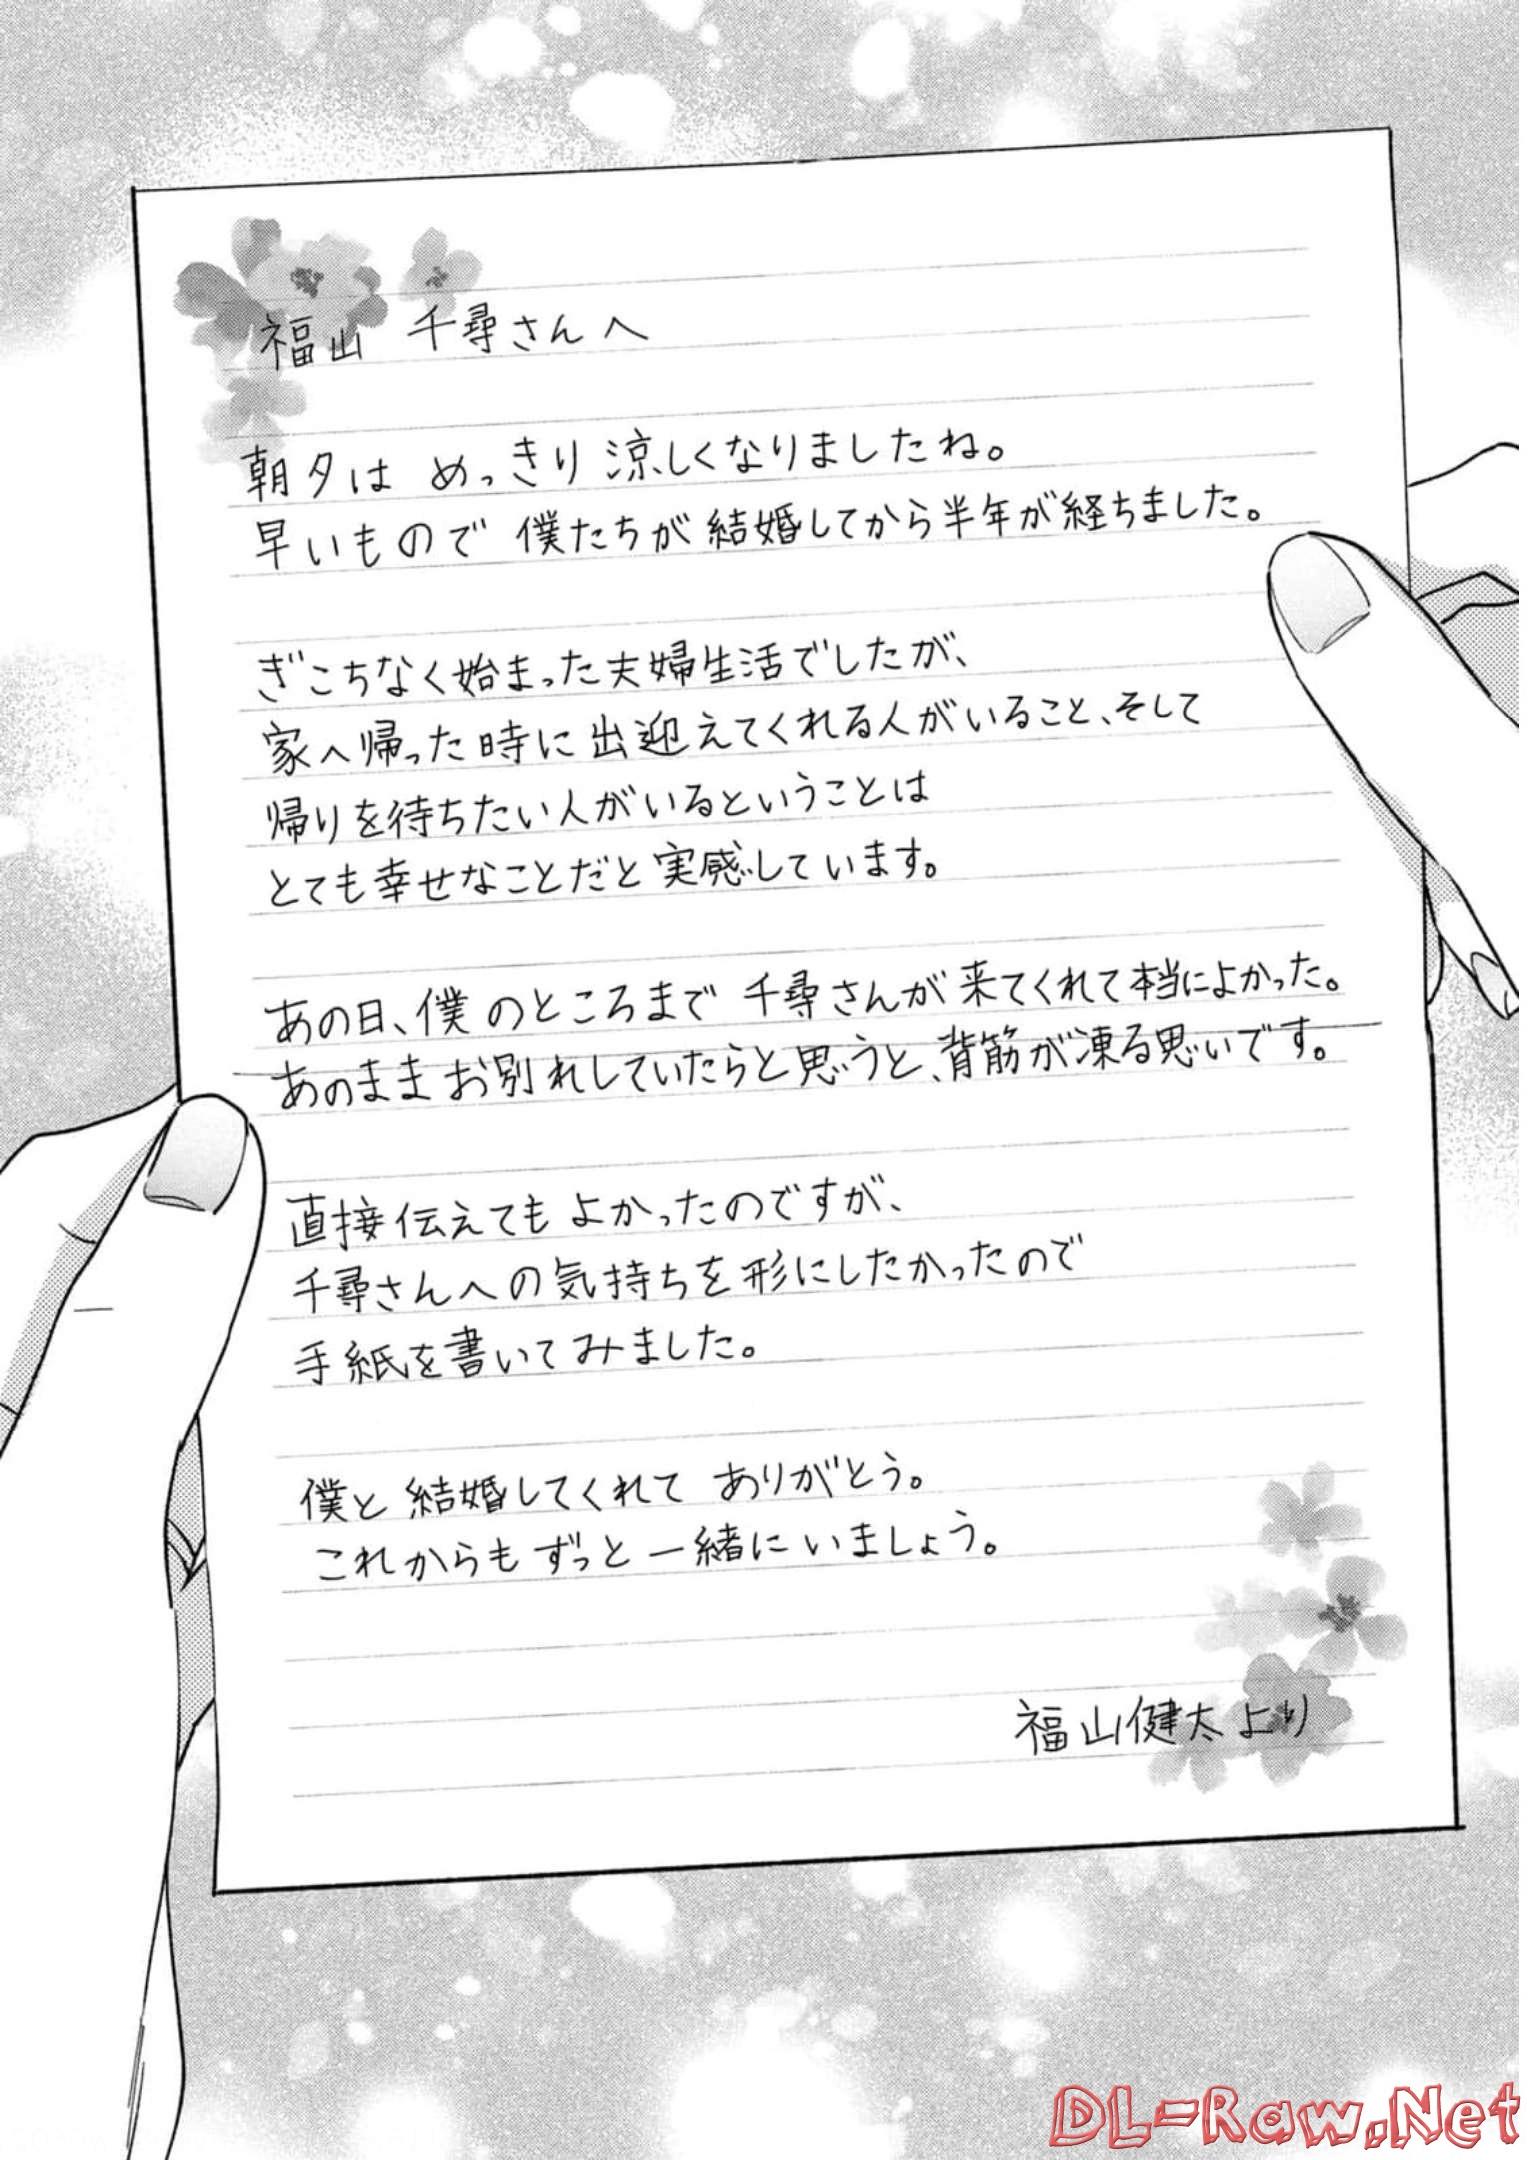 福山 千尋さんへ
朝夕は めっきり 涼しくなりましたね。
早いもので 僕たちが 結婚してから半年が経ちました。
ぎこちなく始まった夫婦生活でしたが、
家へ帰った時に出迎えてくれる人がいること、そして
帰りを待ちたい人がいるということは
とても幸せなことだと実感しています。
あの日、僕のところまで 千尋さんが 来てくれて本当によかった。
あのまま お別れしていたらと思うと、背筋が凍る思いです。
直接伝えても よかったのですが、
千尋さんへの気持ちを形にしたかったので
手紙を書いてみました。
僕と 結婚してくれて ありがとう。
これからも ずっと 一緒に いましょう。
福山健太より
DL-Raw.Net